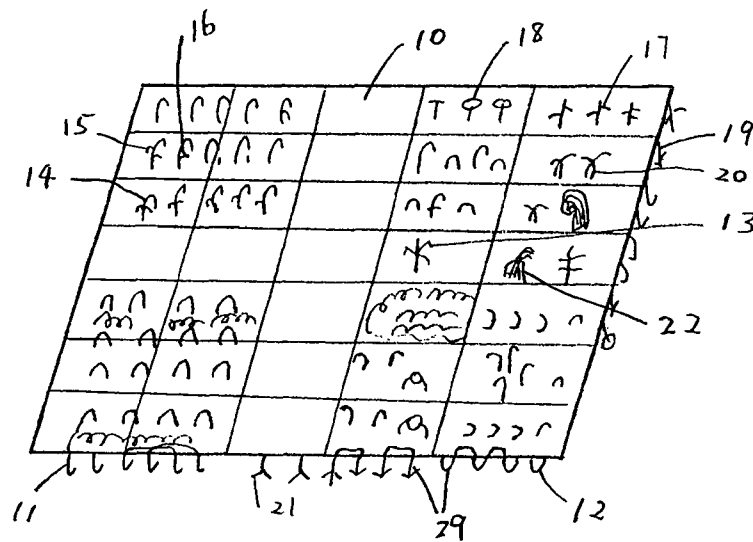 16
10
18
17
15
19
20
14
13
22
11
21
29
12